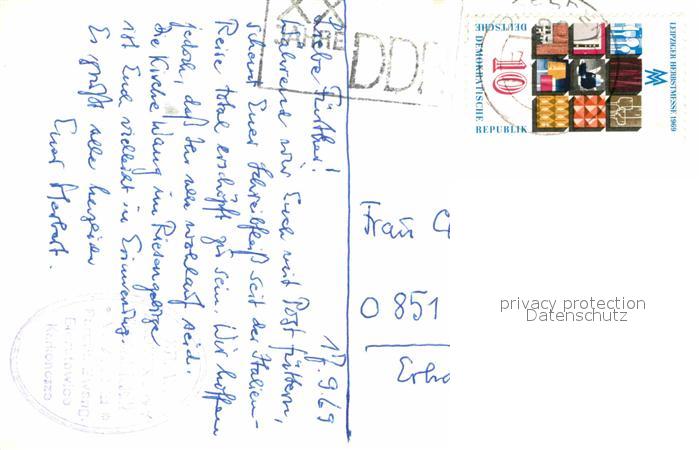 17.9.69
Liebe Fürther!
Während wir Euch mit Post füttern,
scheint Euer Schreibfleiß seit der Italien-
Reise total erschöpft zu sein. Wir hoffen
jedoch, daß Ihr alle wohlauf seid.
Die Kirche Wang im Riesengebirge
ist Euch vielleicht in Erinnerung.
Es grüßt alle herzlich
Euer Herbert.
XX
JAHRE
DDR
LEIPZIGER HERBSTMESSE 1969
10
DEUTSCHE
DEMOKRATISCHE
REPUBLIK
Frau
O 851
privacy protection
Datenschutz
Karkonosze